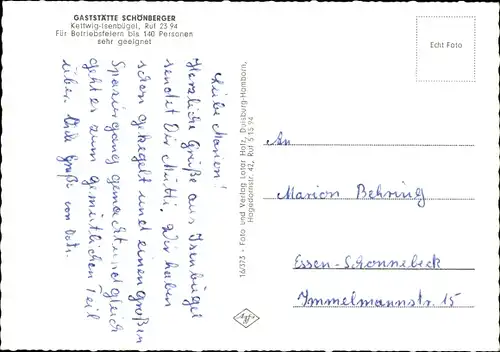 GASTSTÄTTE SCHÖNBERGER
Kettwig-Isenbügel, Ruf 23 94
Für Betriebsfeiern bis 140 Personen
sehr geeignet
Liebe Marion!
Herzliche Grüße aus Isenbügel
sendet Dir Mutti. Wir haben
schon gekegelt und einen großen
Spaziergang gemacht und gleich
geht es zum gemütlichen Teil
über. Viele Grüße von
16/373 · Foto und Verlag Lotar Holz, Duisburg-Hamborn,
Hagedornstr. 42, Ruf 5 15 94
Echt Foto
An
Marion Behring
Essen-Schonnebeck
Immelmannstr. 15
Agfa